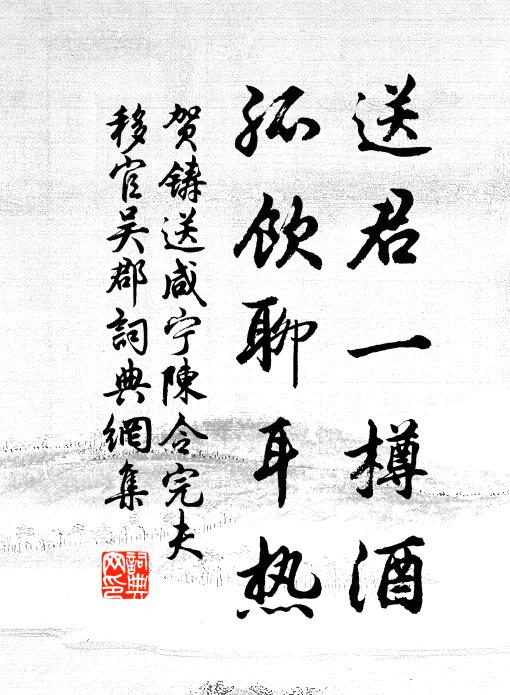 送君一樽酒
孤饮聊耳热
贺鑄送咸宁陳令完夫
移官吴郡詞典網集
詞典
网印